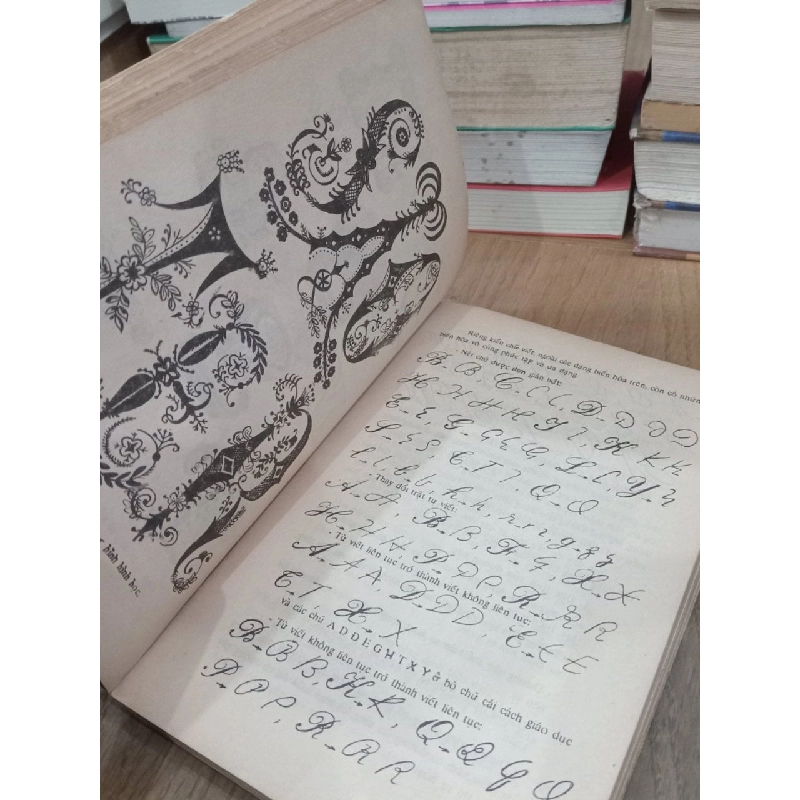 hành hình học.
Riêng kiểu chữ viết, ngoài các dạng biến hóa trên, còn có những
biến hóa vô cùng phức tạp và đa dạng.
- Nét chữ được đơn giản bớt:
B - B, C C C, D - D D D
H H H H, I I, K K K
E - E, G - G G G G, L - L, Y - Y
S - S S, T - T T, Q - Q
l, l, b, b, h, h, r, r, r, g, g, g, g
Thay đổi trật tự viết:
A - A, B - B, F - F, X - X
H - H H, P - P P, R - R R
Từ viết liên tục trở thành viết không liên tục:
A - A A, D - D D, E - E E
T - T, X - X
và các chữ A D D E G H T X Y ở bộ chữ cái cách giáo dục
Từ viết không liên tục trở thành viết liên tục:
B - B B, K - K, Q - Q Q Q
P - P P, R - R R